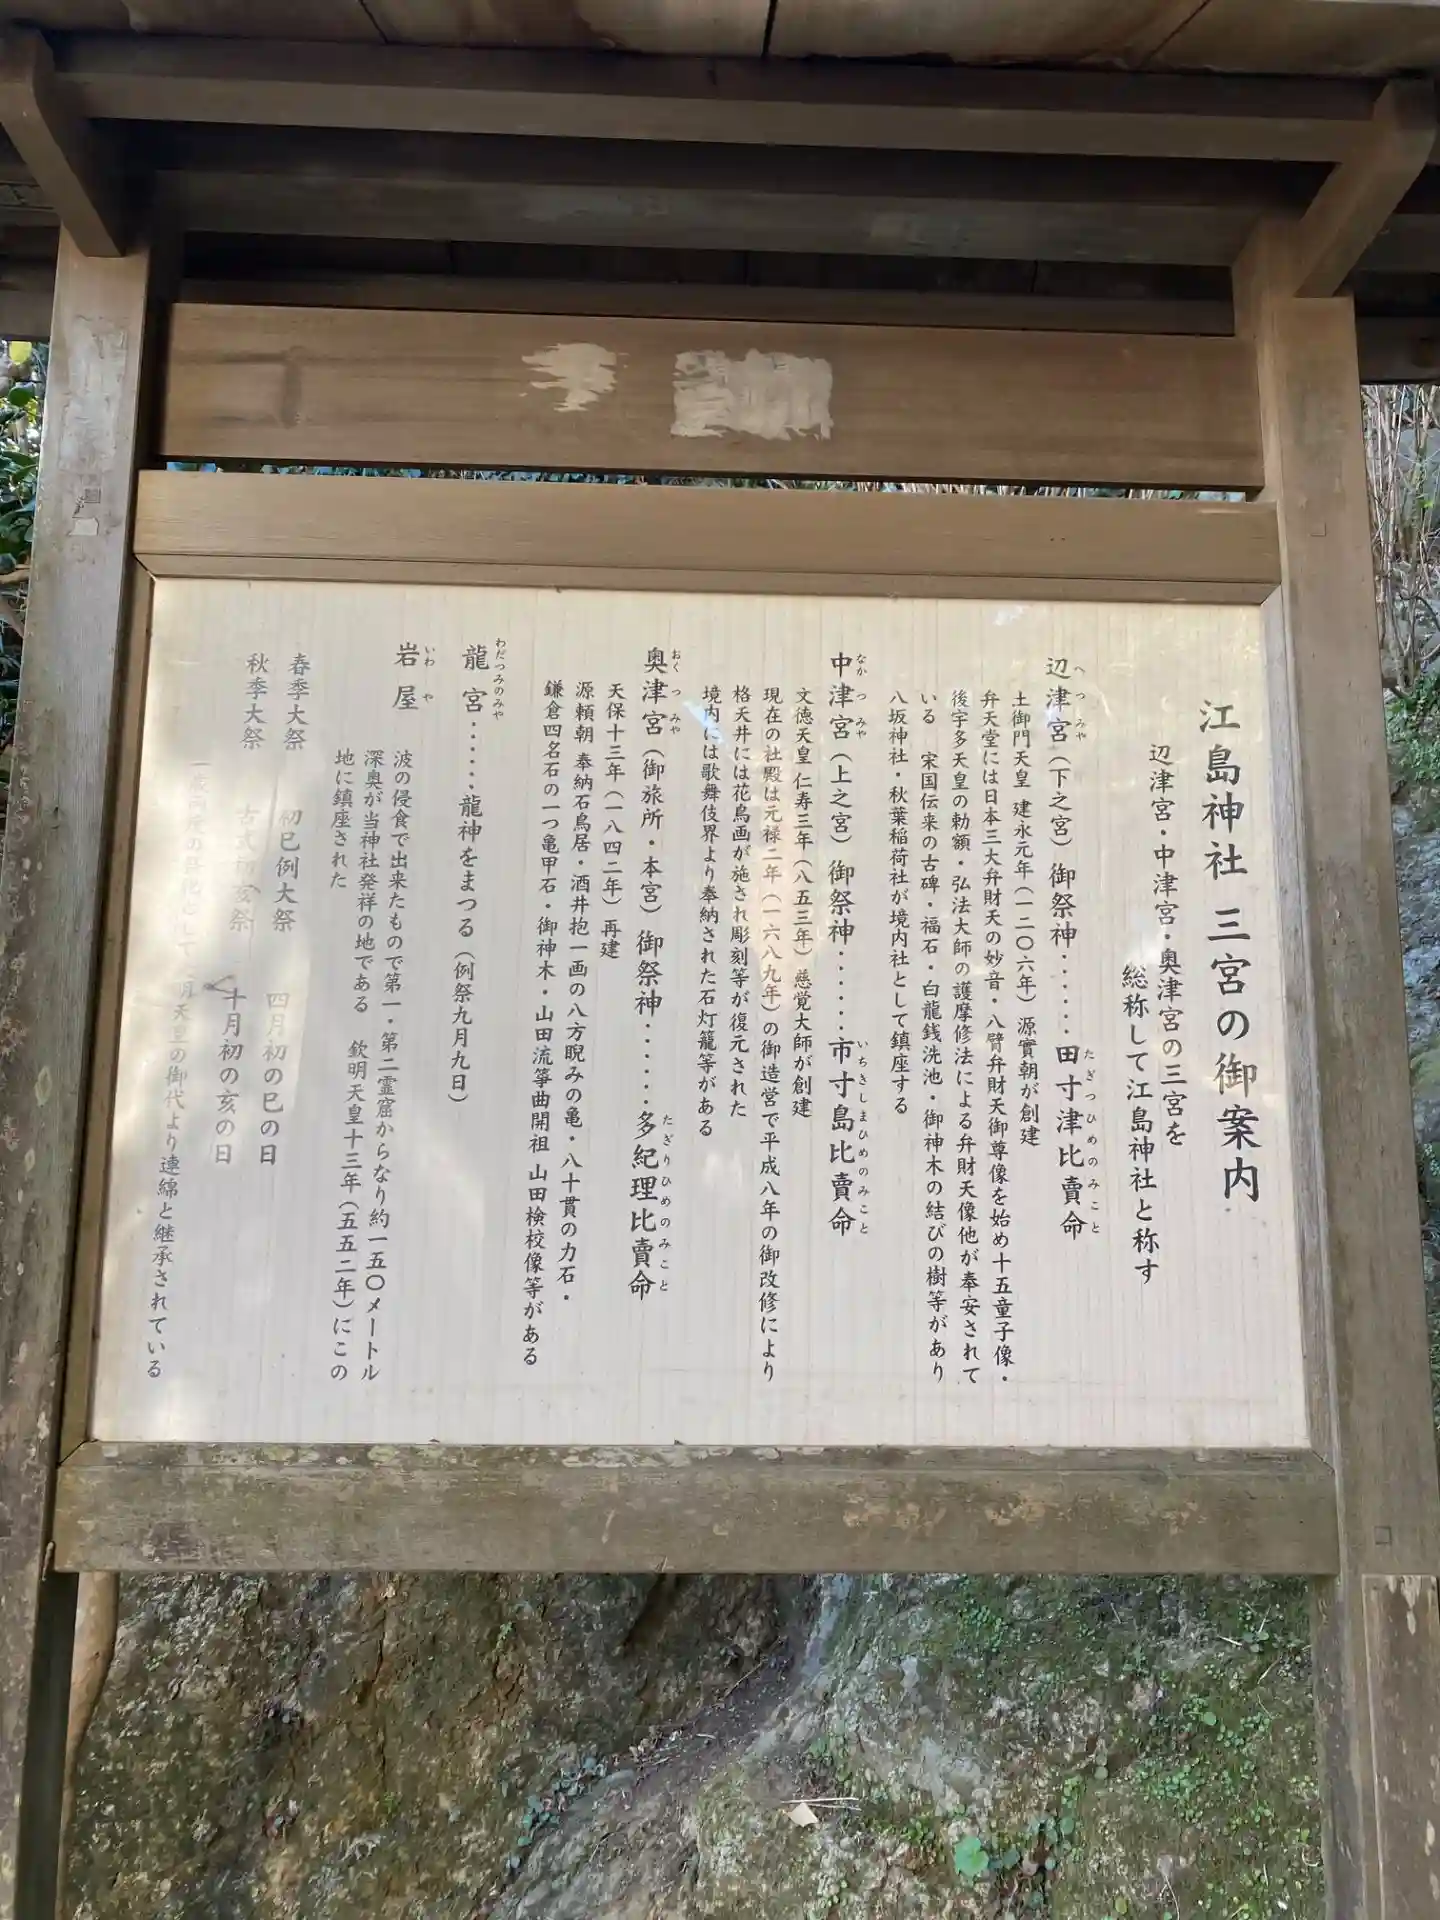 江島神社 三宮の御案内
辺津宮・中津宮・奥津宮の三宮を
総称して江島神社と称す
辺津宮（下之宮）御祭神・・・・・・田寸津比賣命
へつみや
たぎつひめのみこと
土御門天皇 建永元年（一二〇六年）源實朝が創建
弁天堂には日本三大弁財天の妙音・八臂弁財天御尊像を始め十五童子像・
後宇多天皇の勅額・弘法大師の護摩修法による弁財天像他が奉安されて
いる 宋国伝来の古碑・福石・白龍銭洗池・御神木の結びの樹等があり
八坂神社・秋葉稲荷社が境内社として鎮座する
中津宮（上之宮）御祭神・・・・・・市寸島比賣命
なかつみや
いちきしまひめのみこと
文徳天皇 仁寿三年（八五三年）慈覚大師が創建
現在の社殿は元禄二年（一六八九年）の御造営で平成八年の御改修により
格天井には花鳥画が施され彫刻等が復元された
境内には歌舞伎界より奉納された石灯籠等がある
奥津宮（御旅所・本宮）御祭神・・・・・・多紀理比賣命
おくつみや
たぎりひめのみこと
天保十三年（一八四二年）再建
源頼朝 奉納石鳥居・酒井抱一画の八方睨みの亀・八十貫の力石・
鎌倉四名石の一つ亀甲石・御神木・山田流箏曲開祖 山田検校像等がある
龍宮・・・・・・龍神をまつる（例祭九月九日）
わだつみのみや
岩屋
いわや
波の侵食で出来たもので第一・第二霊窟からなり約一五〇メートル
深奥が当神社発祥の地である 欽明天皇十三年（五五二年）にこの
地に鎮座された
春季大祭 初巳例大祭 四月初の巳の日
秋季大祭 古式初亥祭 十月初の亥の日
天皇の御代より連綿と継承されている